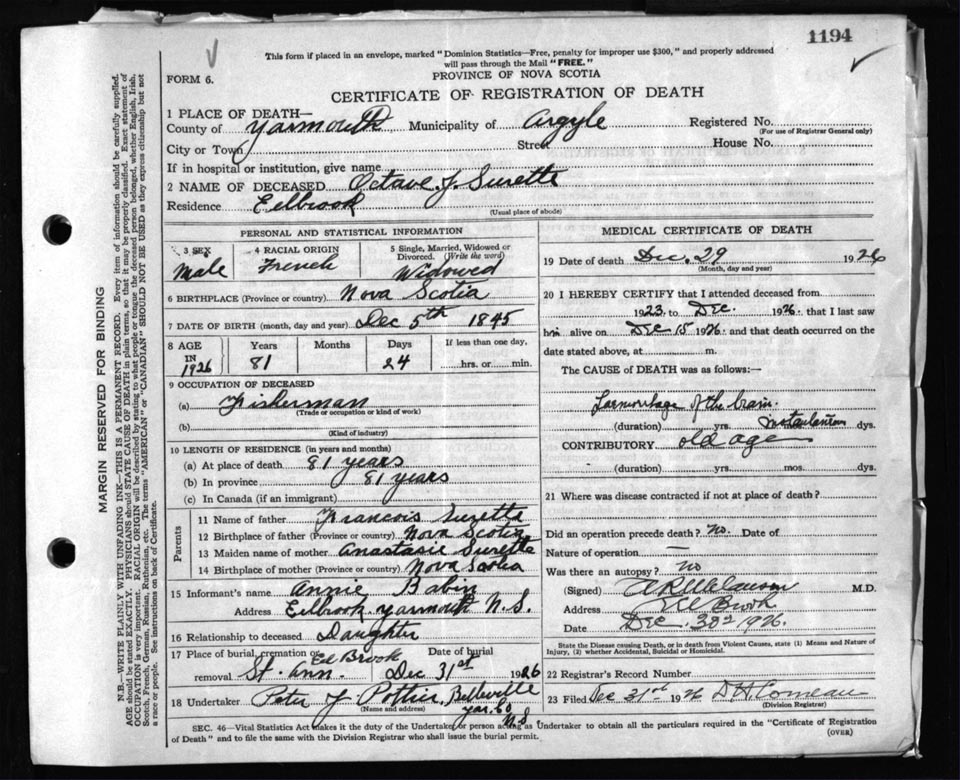 1194
This form if placed in an envelope, marked "Dominion Statistics—Free, penalty for improper use $300," and properly addressed
will pass through the Mail "FREE."
FORM 6.
PROVINCE OF NOVA SCOTIA
CERTIFICATE OF REGISTRATION OF DEATH
1 PLACE OF DEATH—
County of Yarmouth Municipality of Argyle Registered No.
(For use of Registrar General only)
City or Town Street House No.
If in hospital or institution, give name
2 NAME OF DECEASED Octave J. Surette
Residence Eelbrook
(Usual place of abode)
PERSONAL AND STATISTICAL INFORMATION
3 SEX 4 RACIAL ORIGIN 5 Single, Married, Widowed or
Divorced. (Write the word)
Male French Widowed
6 BIRTHPLACE (Province or country) Nova Scotia
7 DATE OF BIRTH (month, day and year) Dec 5th 1845
8 AGE Years Months Days If less than one day,
IN 1926 81 24 hrs. or min.
9 OCCUPATION OF DECEASED
(a) Fisherman
(Trade or occupation or kind of work)
(b)
(Kind of industry)
10 LENGTH OF RESIDENCE (in years and months)
(a) At place of death 81 years
(b) In province 81 years
(c) In Canada (if an immigrant)
Parents
11 Name of father Francois Surette
12 Birthplace of father (Province or country) Nova Scotia
13 Maiden name of mother Anastasie Surette
14 Birthplace of mother (Province or country) Nova Scotia
15 Informant's name Annie Babin
Address Eelbrook Yarmouth N.S.
16 Relationship to deceased Daughter
17 Place of burial, cremation or Date of burial
removal St. Ann. Eel Brook Dec 31st 1926
18 Undertaker Peter J Pottier, Belleville
(Name and address) Yar. Co
N.S
MEDICAL CERTIFICATE OF DEATH
19 Date of death Dec. 29 1926
(Month, day and year)
20 I HEREBY CERTIFY that I attended deceased from
1923 to Dec. 1926. that I last saw
him alive on Dec 15 1926 and that death occurred on the
date stated above, at m.
The CAUSE of DEATH was as follows:
Haemorrhage of the brain.
(duration) yrs. dys.
CONTRIBUTORY old age
(duration) yrs. mos. dys.
21 Where was disease contracted if not at place of death?
Did an operation precede death? No. Date of
Nature of operation —
Was there an autopsy? No
(Signed) M.D.
Address Eel Brook
Date Dec 30 1926.
State the Disease causing Death, or in death from Violent Causes, state (1) Means and Nature of
Injury, (2) whether Accidental, Suicidal or Homicidal.
22 Registrar's Record Number
23 Filed Dec 31st 1926 D H Comeau
(Division Registrar)
SEC. 46—Vital Statistics Act makes it the duty of the Undertaker or person acting as Undertaker to obtain all the particulars required in the "Certificate of Registration
of Death" and to file the same with the Division Registrar who shall issue the burial permit.
(OVER)
MARGIN RESERVED FOR BINDING
N.B.—WRITE PLAINLY WITH UNFADING INK—THIS IS A PERMANENT RECORD. Every item of information should be carefully supplied.
AGE should be stated EXACTLY. PHYSICIANS should STATE CAUSE OF DEATH in plain terms, so that it may be properly classified. Exact statement of
OCCUPATION is very important. RACIAL ORIGIN will be described by stating to what people or tongue the deceased person belonged, whether English, Irish,
Scotch, French, German, Russian, Ruthenian, etc. The terms "AMERICAN" or "CANADIAN" SHOULD NOT BE USED as they express citizenship but not
a race or people. See instructions on back of Certificate.